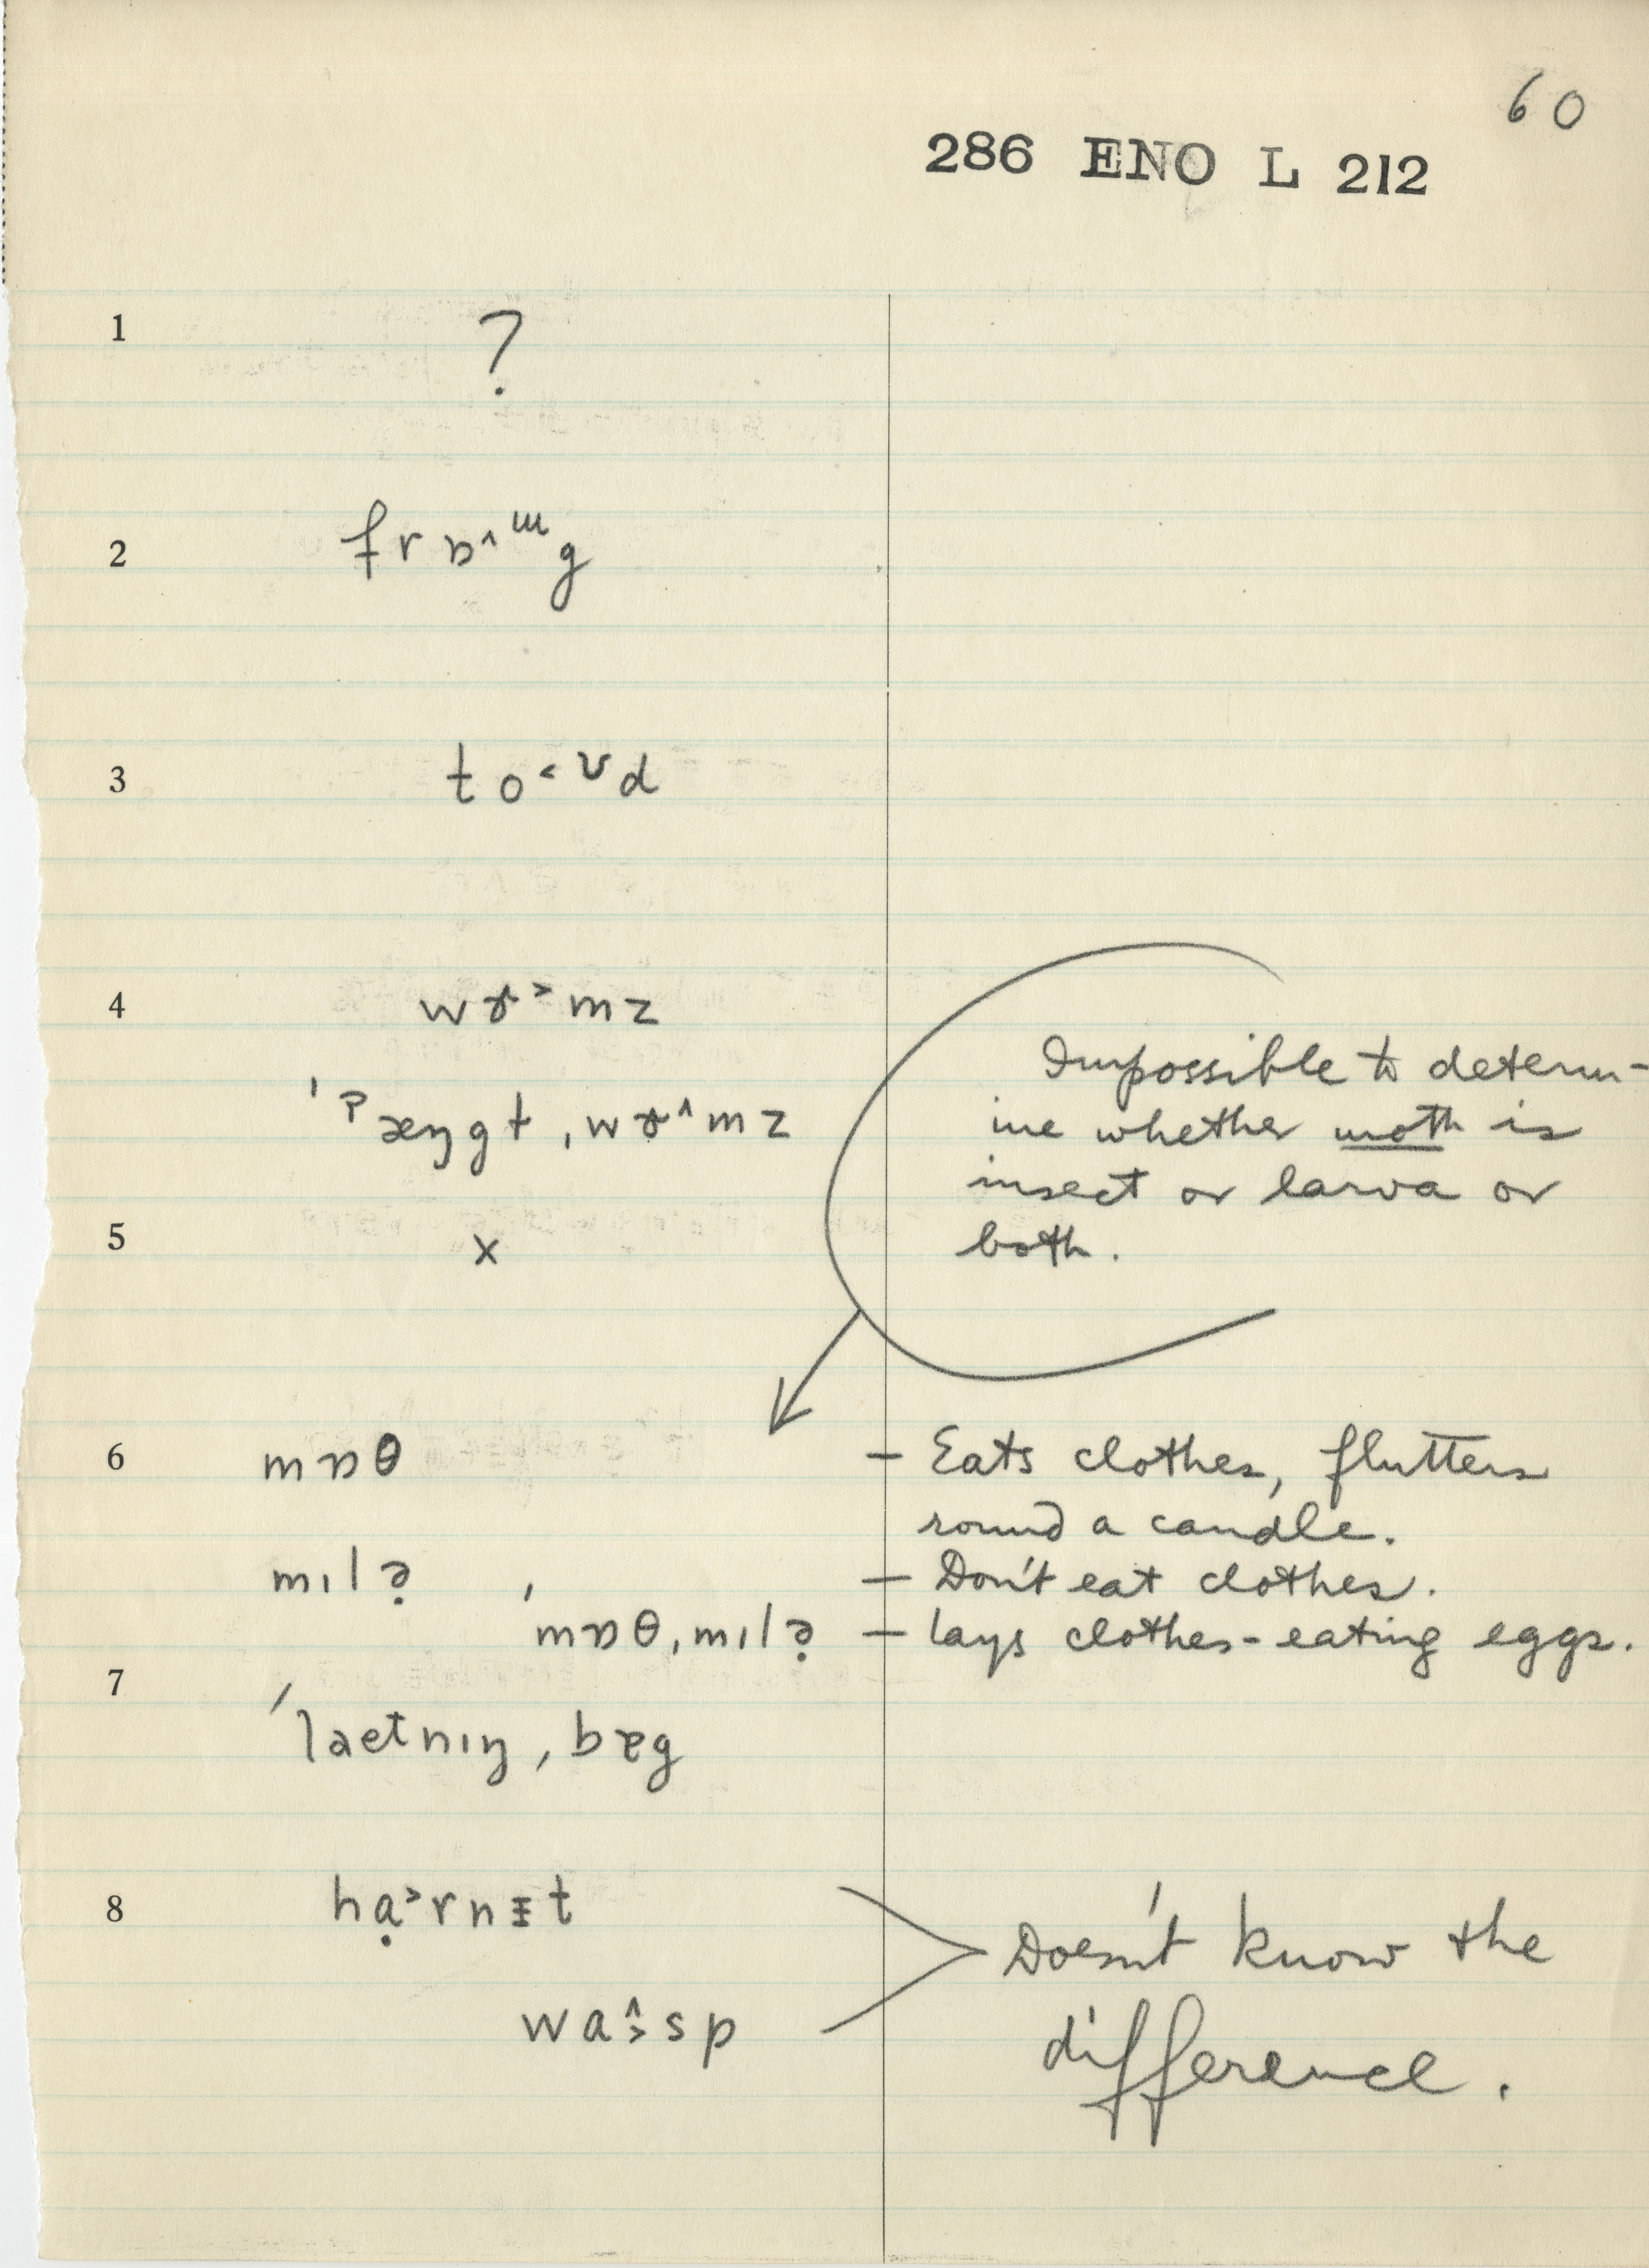 60
286 ENO L 212
1 ?
2 frɒ˄ɯg
3 to˂ʊd
4 wɝ˃mz
ˈˀæŋgt ˌwɝ˄mz
Impossible to determ-
ine whether moth is
insect or larva or
both.
5 x
6 mɒθ – Eats clothes, flutters
round a candle.
mɪlə̣ – Don't eat clothes.
ˈmɒθˌmɪlə̣ – lays clothes-eating eggs.
7
ˈlaetnɪŋˌbɐg
8 hạ˃rnɪt
Doesn't know the
wa˄˃sp
difference.